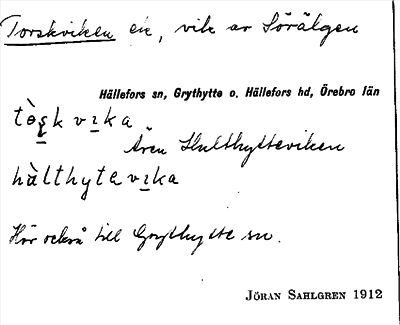 Torskviken en, vik av Sörälgen
Hällefors sn, Grythytte o. Hällefors hd, Örebro län
tò̤ṣk vı̱ka
Även Hulthytteviken
hàlthyta vı̱ka
Hör också till Grythytte sn.
JÖRAN SAHLGREN 1912